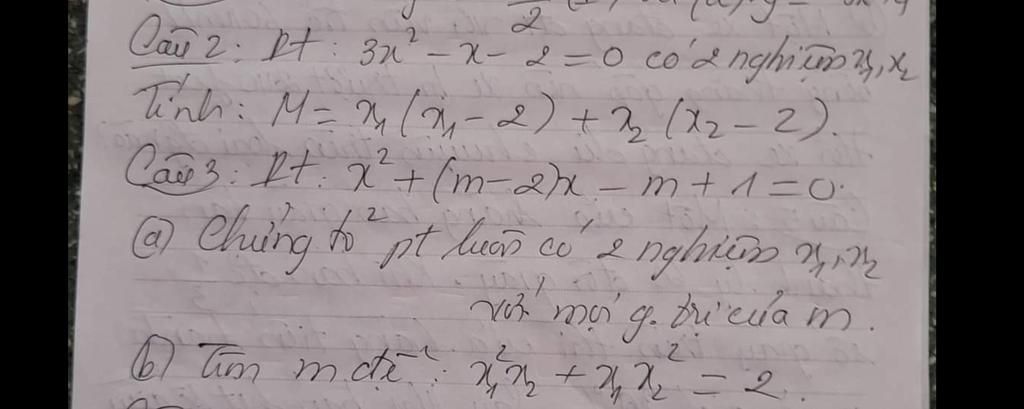 2
Câu 2: Pt: 3x² - x - 2 = 0 có 2 nghiệm x₁, x₂
Tính: M = x₁(x₁ - 2) + x₂(x₂ - 2).
Câu 3: Pt: x² + (m - 2)x - m + 1 = 0.
a) Chứng tỏ pt luôn có 2 nghiệm x₁, x₂
với mọi g. trị của m.
b) Tìm m để: x₁²x₂ + x₁x₂² = 2.